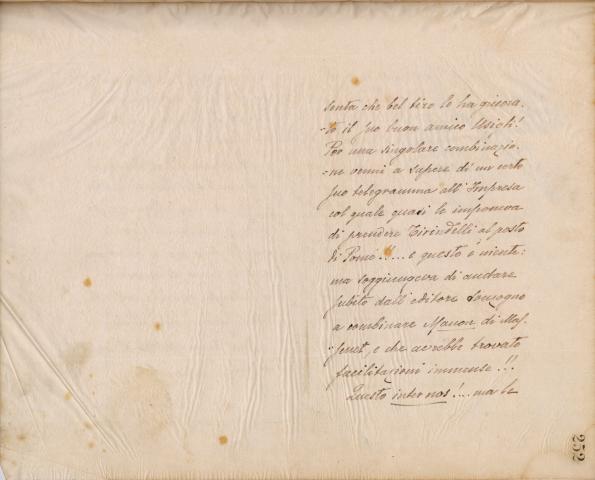 senta che bel tiro le ha giuoca-
-to il suo buon amico Usigli!
Per una singolare combinazio-
-ne venni a sapere di un certo
suo telegramma all'Impresa
col quale quasi le imponeva
di prendere Tirindelli al posto
di Pomé!!... e questo è niente:
ma soggiungeva di andare
subito dall'editore Sonzogno
a combinare Manon di Mas-
-senet, e che avrebbe trovato
facilitazioni immense!!!
Questo inter nos!... ma le
252